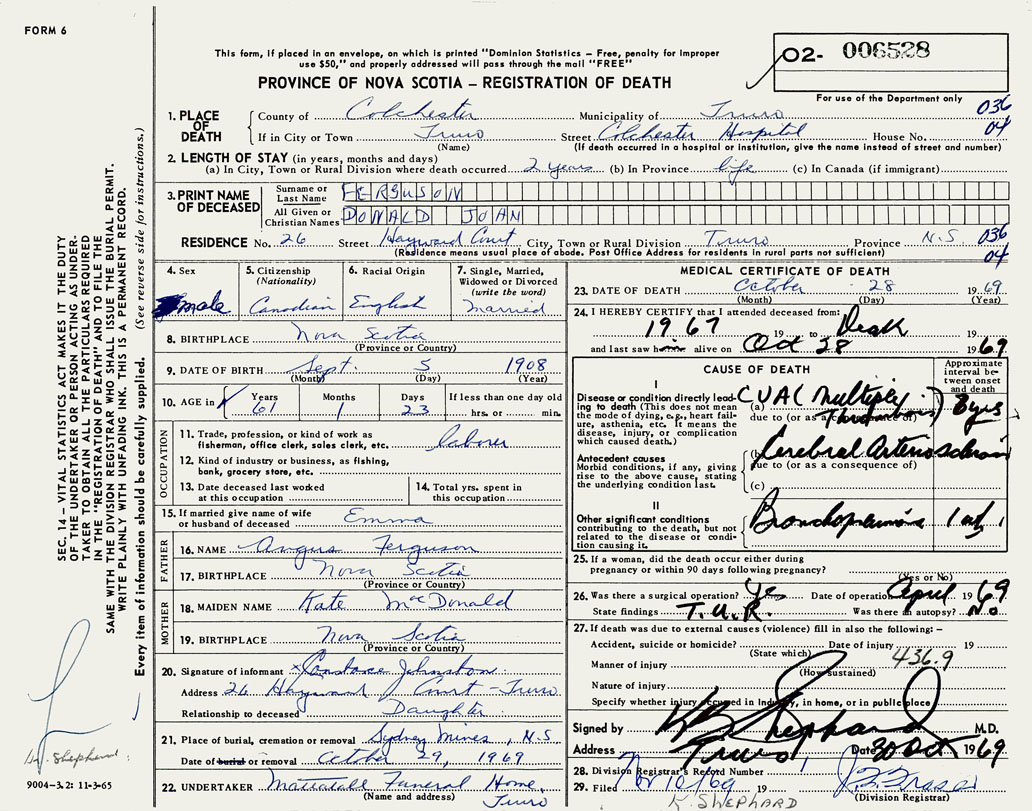 FORM 6
This form, if placed in an envelope, on which is printed "Dominion Statistics – Free, penalty for improper
use $50," and properly addressed will pass through the mail "FREE"
PROVINCE OF NOVA SCOTIA – REGISTRATION OF DEATH
02- 006528
For use of the Department only
1. PLACE OF DEATH County of Colchester Municipality of Truro 036
If in City or Town Truro Street Colchester Hospital House No. 04
(Name) (If death occurred in a hospital or institution, give the name instead of street and number)
2. LENGTH OF STAY (in years, months and days)
(a) In City, Town or Rural Division where death occurred 2 years (b) In Province life (c) In Canada (if immigrant)
3. PRINT NAME OF DECEASED Surname or Last Name FERGUSON
All Given or Christian Names DONALD JOAN
RESIDENCE No. 26 Street Hayward Court City, Town or Rural Division Truro Province N.S. 036
(Residence means usual place of abode. Post Office Address for residents in rural parts not sufficient) 04
4. Sex male
5. Citizenship (Nationality) Canadian
6. Racial Origin English
7. Single, Married, Widowed or Divorced (write the word) Married
8. BIRTHPLACE Nova Scotia
(Province or Country)
9. DATE OF BIRTH Sept. 5 1908
(Month) (Day) (Year)
10. AGE in Years 61 Months 1 Days 23 If less than one day old hrs. or min.
OCCUPATION
11. Trade, profession, or kind of work as fisherman, office clerk, sales clerk, etc. laborer
12. Kind of industry or business, as fishing, bank, grocery store, etc.
13. Date deceased last worked at this occupation
14. Total yrs. spent in this occupation
15. If married give name of wife or husband of deceased Emma
FATHER
16. NAME Angus Ferguson
17. BIRTHPLACE Nova Scotia
(Province or Country)
MOTHER
18. MAIDEN NAME Kate McDonald
19. BIRTHPLACE Nova Scotia
(Province or Country)
20. Signature of informant x Candace Johnston
Address 26 Hayward Court - Truro
Relationship to deceased Daughter
21. Place of burial, cremation or removal Sydney Mines, N.S
Date of burial or removal October 29, 1969
22. UNDERTAKER Mattatall Funeral Home,
(Name and address) Truro
MEDICAL CERTIFICATE OF DEATH
23. DATE OF DEATH October 28 1969
(Month) (Day) (Year)
24. I HEREBY CERTIFY that I attended deceased from:
1967 19 to Death 19
and last saw him alive on Oct 28 1969
CAUSE OF DEATH
Approximate interval between onset and death
I
Disease or condition directly leading to death (This does not mean the mode of dying, e.g., heart failure, asthenia, etc. It means the disease, injury, or complication which caused death.)
(a) CVA (Multiple Thrombosis) 3 yrs
due to (or as a consequence of)
Antecedent causes
Morbid conditions, if any, giving rise to the above cause, stating the underlying condition last.
(b) Cerebral Arteriosclerosis
due to (or as a consequence of)
(c)
II
Other significant conditions contributing to the death, but not related to the disease or condition causing it.
Bronchopneumonia 1 wk
25. If a woman, did the death occur either during pregnancy or within 90 days following pregnancy?
(Yes or No)
26. Was there a surgical operation? Yes Date of operation April 1969
State findings T.U.R. Was there an autopsy? No
27. If death was due to external causes (violence) fill in also the following: –
Accident, suicide or homicide? Date of injury 19
(State which) 436.9
Manner of injury
(How sustained)
Nature of injury
Specify whether injury occured in Industry, in home, or in public place
Signed by KB Shephard M.D.
Address Truro Date 30 Oct 1969
28. Division Registrar's Record Number
29. Filed Nov 10/69 19
(Division Registrar)
K. SHEPHARD
SEC. 14 – VITAL STATISTICS ACT MAKES IT THE DUTY
OF THE UNDERTAKER OR PERSON ACTING AS UNDER-
TAKER TO OBTAIN ALL THE PARTICULARS REQUIRED
IN THE "REGISTRATION OF DEATH" AND TO FILE THE
SAME WITH THE DIVISION REGISTRAR WHO SHALL ISSUE THE BURIAL PERMIT.
WRITE PLAINLY WITH UNFADING INK. THIS IS A PERMANENT RECORD.
Every item of information should be carefully supplied. (See reverse side for instructions.)
Shephard
9004-3.2: 11-3-65